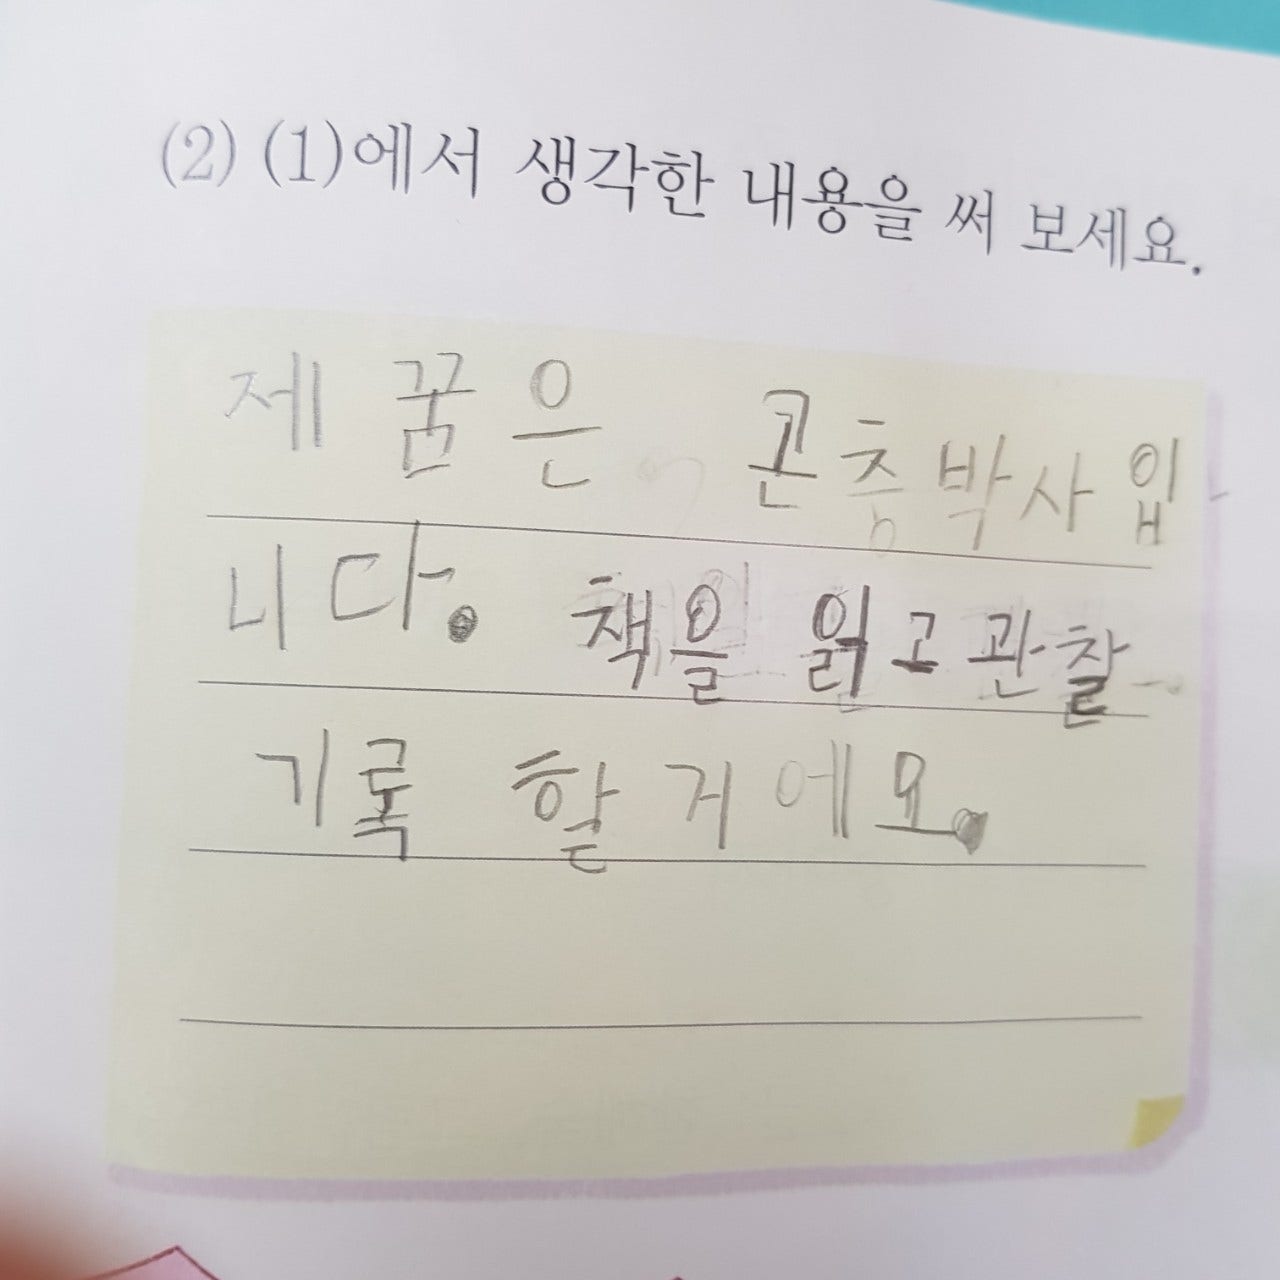 (2) (1)에서 생각한 내용을 써 보세요.
제 꿈은 곤충박사입
니다. 책을 읽고 관찰
기록 할 거에요.